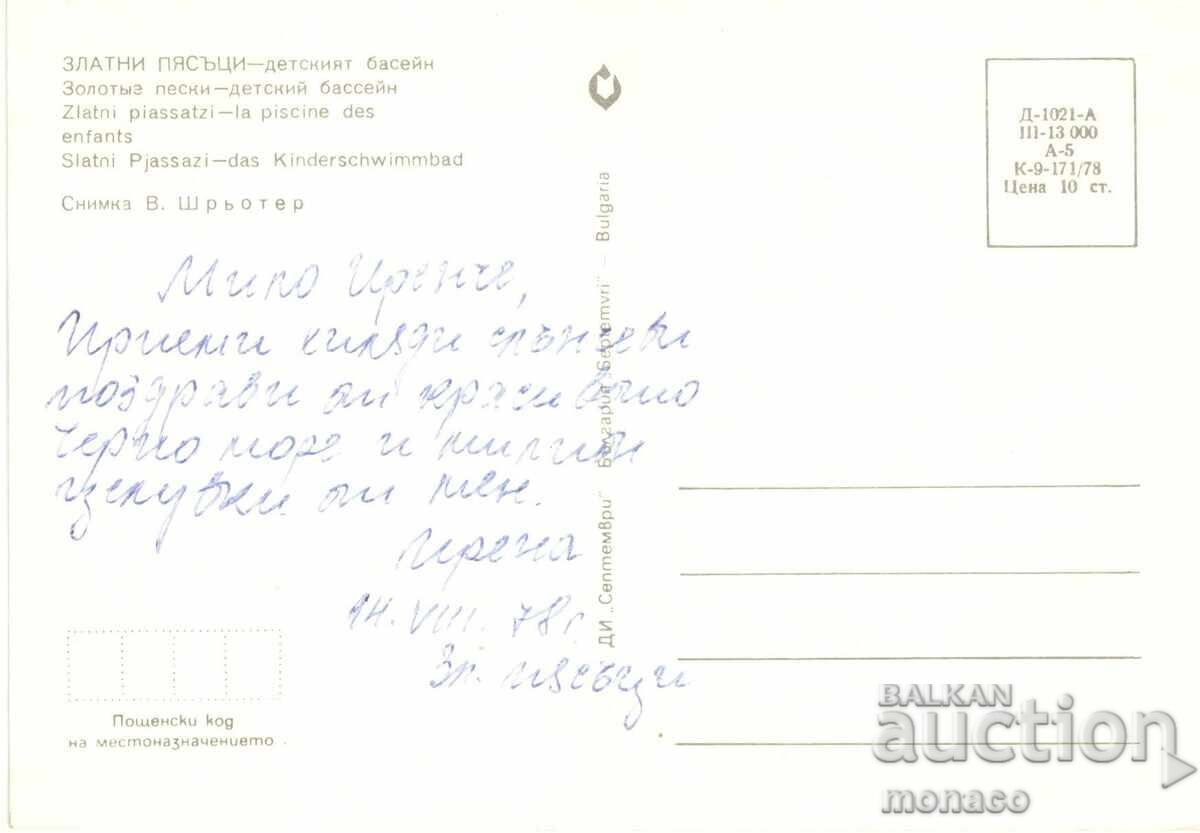 ЗЛАТНИ ПЯСЪЦИ—детският басейн
Золотыэ пески—детский бассейн
Zlatni piassatzi—la piscine des
enfants
Slatni Pjassazi—das Kinderschwimmbad
Снимка В. Шрьотер
Мило Иренче,
Приеми хиляди слънчеви
поздрави от красивото
Черно море и милион
целувки от мен.
Ирена
14. VIII. 78 г.
Зл. пясъци
Пощенски код
на местоназначението
ДИ „Септември" България „Septemvri" — Bulgaria
Д-1021-А
III-13 000
А-5
К-9-171/78
Цена 10 ст.
BALKAN
auction
monaco